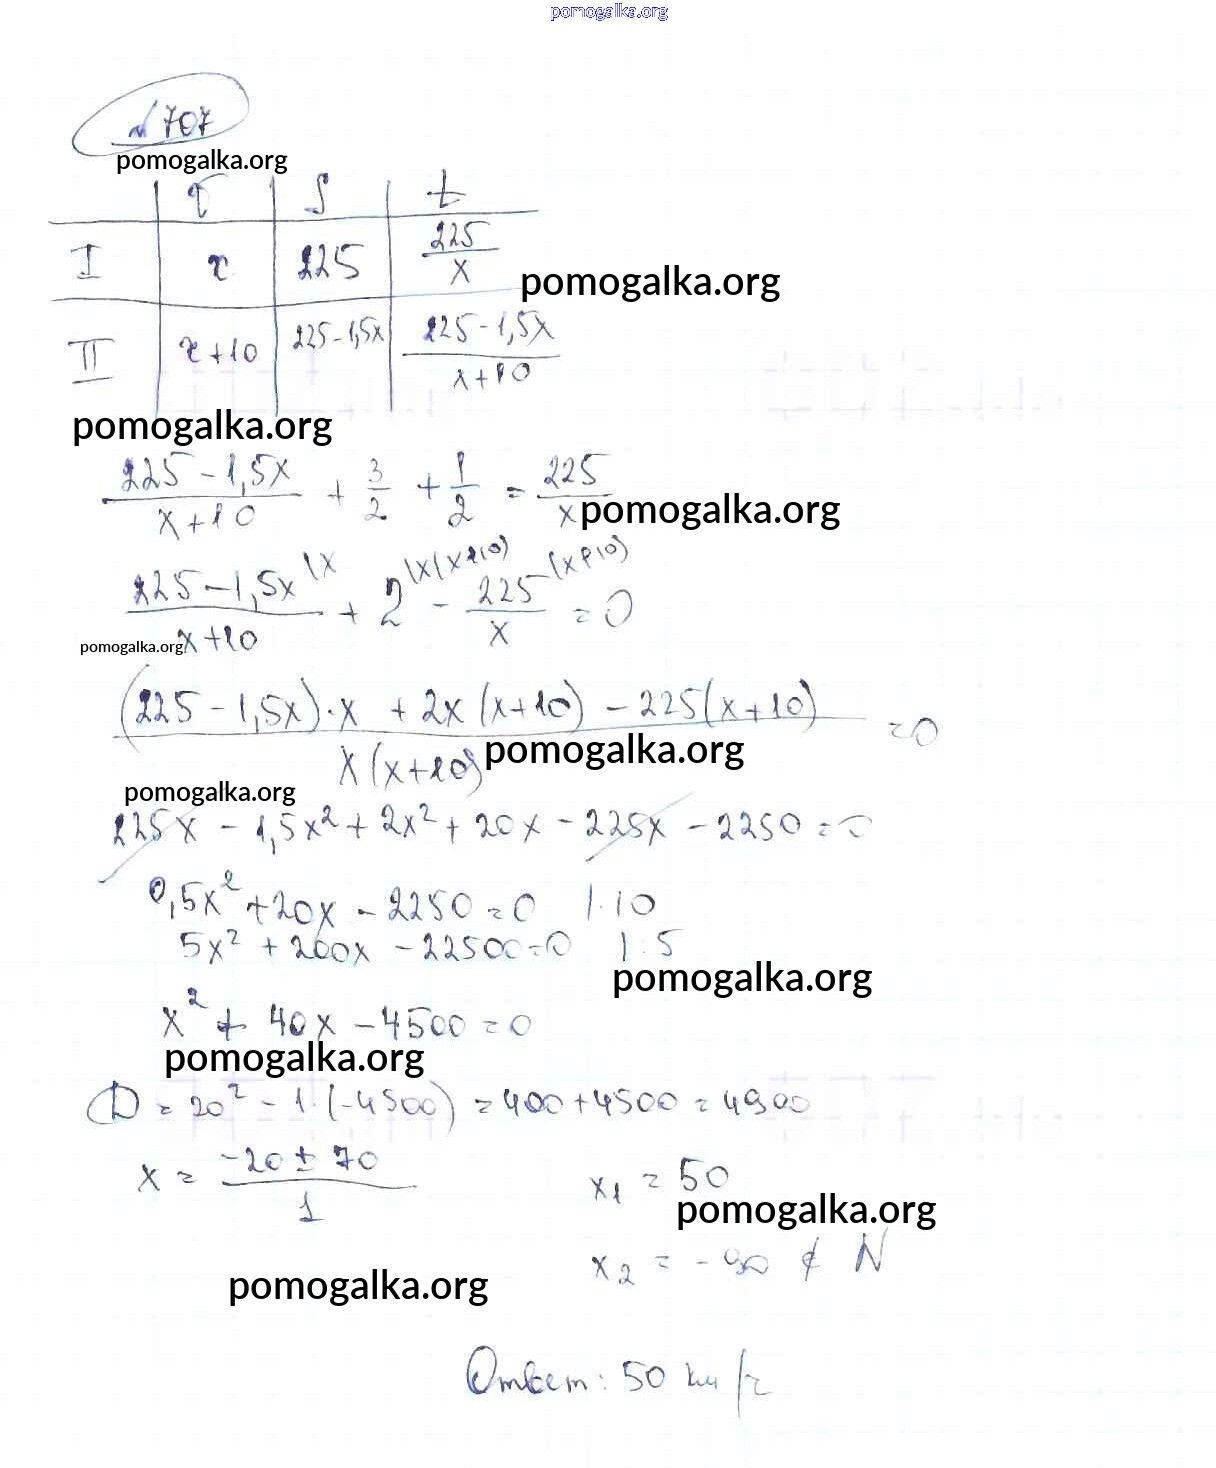 pomogalka.org
№ 707
pomogalka.org
v S t
I x 225 225/x
pomogalka.org
II x+10 225-1,5x (225-1,5x)/(x+10)
pomogalka.org
(225-1,5x)/(x+10) + 3/2 + 1/2 = 225/x
pomogalka.org
(225-1,5x)/(x+10) \x + 2 \x(x+10) - 225/x \(x+10) = 0
pomogalka.org
((225-1,5x)·x + 2x(x+10) - 225(x+10))/(x(x+10)) = 0
pomogalka.org
pomogalka.org
225x - 1,5x² + 2x² + 20x - 225x - 2250 = 0
0,5x² + 20x - 2250 = 0 |·10
5x² + 200x - 22500 = 0 |:5
pomogalka.org
x² + 40x - 4500 = 0
pomogalka.org
D = 20² - 1·(-4500) = 400 + 4500 = 4900
x = (-20 ± 70)/1 x₁ = 50
pomogalka.org
x₂ = -90 ∉ N
pomogalka.org
Ответ: 50 км/ч